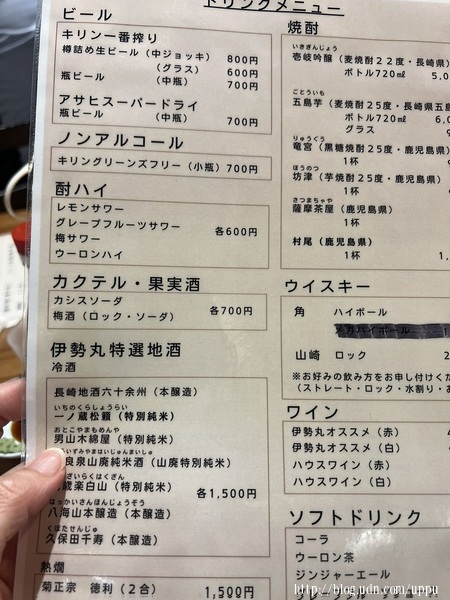 ドリンクメニュー
ビール
キリン一番搾り
樽詰め生ビール（中ジョッキ） 800円
（グラス） 600円
瓶ビール （中瓶） 700円
アサヒスーパードライ
瓶ビール （中瓶） 700円
ノンアルコール
キリングリーンズフリー（小瓶）700円
酎ハイ
レモンサワー
グレープフルーツサワー
梅サワー
ウーロンハイ
各600円
カクテル・果実酒
カシスソーダ
梅酒（ロック・ソーダ）
各700円
伊勢丸特選地酒
冷酒
長崎地酒六十余州（本醸造）
いちのくらしょうらい
一ノ蔵松籟（特別純米）
おとこやまもめんや
男山木綿屋（特別純米）
いずみやまはいじゅんまいしゅ
良泉山廃純米酒（山廃特別純米）
ざいらくはくざん
蔵楽白山（特別純米）
はっかいさんほんじょうぞう
八海山本醸造（本醸造）
くぼたせんじゅ
久保田千寿（本醸造）
各1,500円
熱燗
菊正宗 徳利（２合） 1,500円
焼酎
いきぎんじょう
壱岐吟醸（麦焼酎２２度・長崎県）
ボトル720㎖ 5,0
ごとういも
五島芋（麦焼酎25度・長崎県五島
ボトル720㎖ 6,0
グラス
りゅうぐう
竜宮（黒糖焼酎25度・鹿児島県）
1杯
ぼうのつ
坊津（芋焼酎25度・鹿児島県）
1杯
さつまちゃや
薩摩茶屋（鹿児島県）
1杯
村尾（鹿児島県）
1杯 1,
ウイスキー
角 ハイボール
メガハイボール 1
山崎 ロック 2
※お好みの飲み方をお申し付けくだ
（ストレート・ロック・水割り・お
ワイン
伊勢丸オススメ（赤） 4
伊勢丸オススメ（白）
ハウスワイン（赤）
ハウスワイン（白）
ソフトドリンク
コーラ
ウーロン茶
ジンジャーエール
http://blog.udn.com/uppu